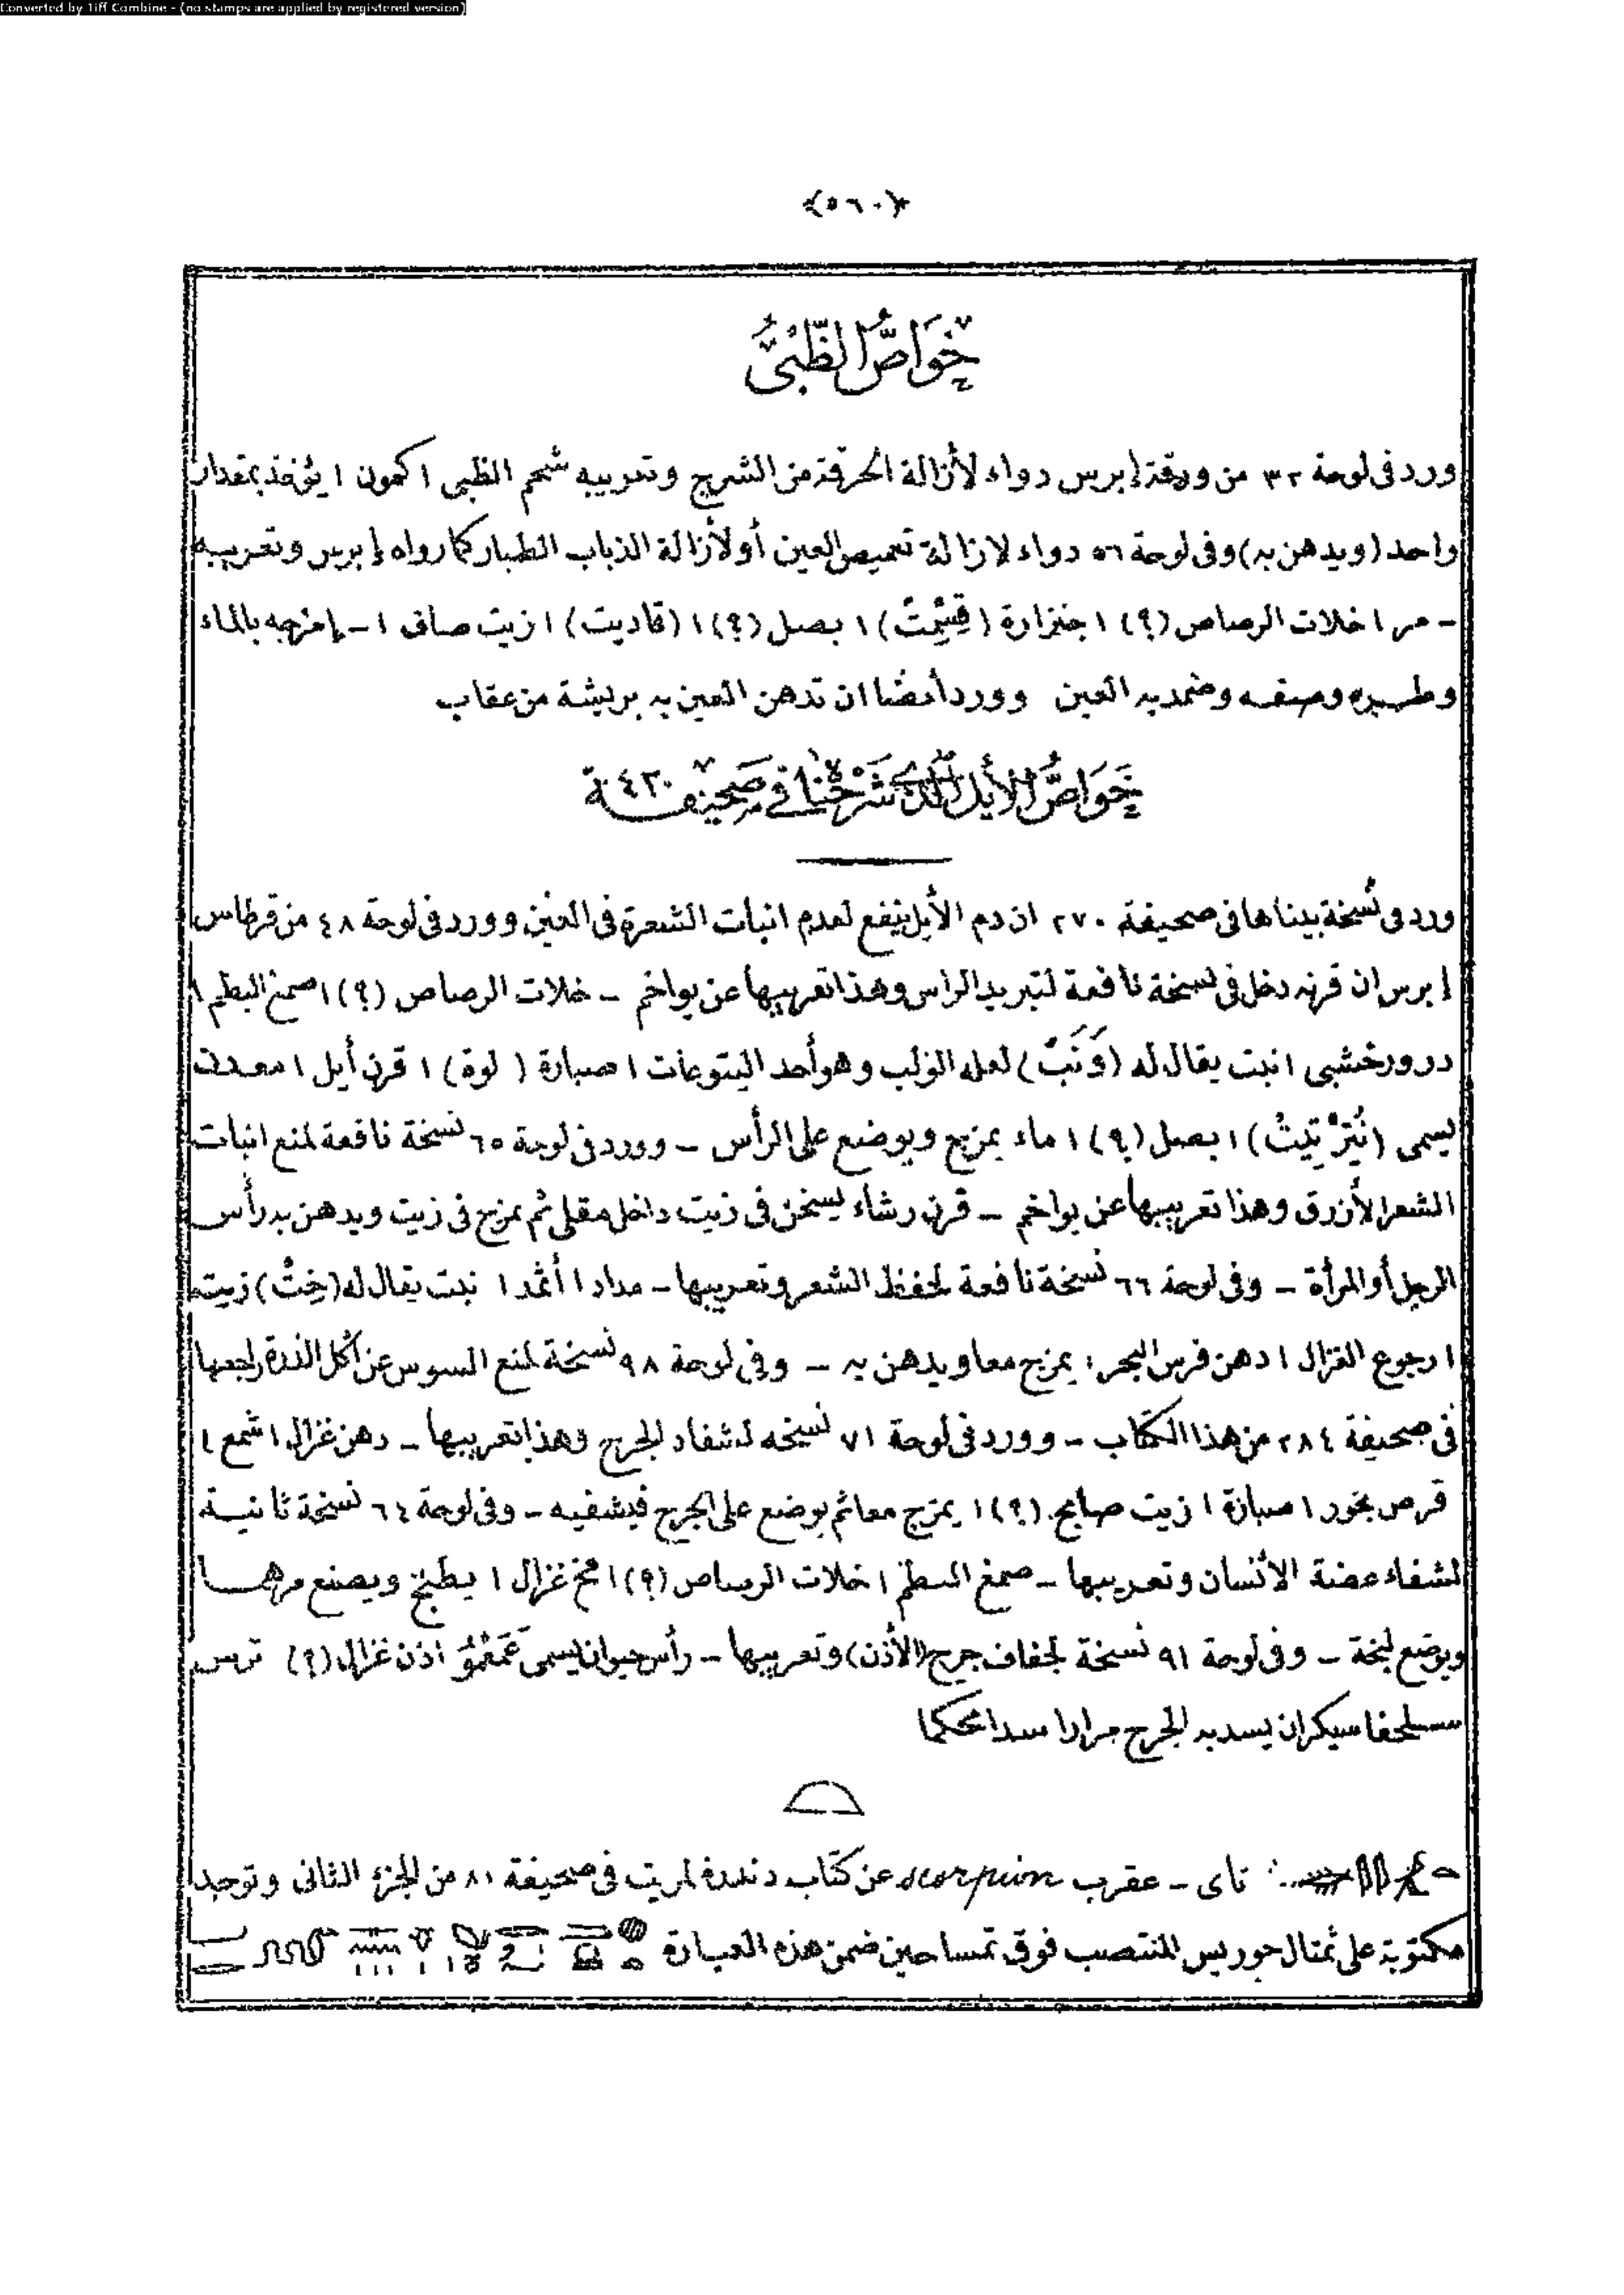 Converted by Tiff Combine - (no stamps are applied by registered version)
﴿٥٦٠﴾
خَوَاصُّ الظَّبْىُّ
ورد فى لوحة ٣٢ من ورقة إبرس دواء لأزالة الحرقة من الشرج وتعريبه شحم الظبى ١ كمون ١ يؤخذ بمقدار
واحد (ويدهن به) وفى لوحة ٥٦ دواء لازالة تعميص العين أو لأزالة الذباب الطيار كما رواه إبرس وتعريبه
– مر ١ خلات الرصاص (؟) ١ جنزارة (قِسْمِتْ) ١ بصل (؟) ١ (قاديت) ١ زيت صاف ١ – إمزجه بالماء
وطـيره وصفـه وضمد به العين وورد أيضا ان تدهن العين به بريشة من عقاب
خَوَاصُّ الأيل الَّذى شَرَحْنَا فى صَحِيفـة ٤٣٠
ورد فى نسخة بيناها فى صحيفة ٢٧٠ ان دم الأيل ينفع لعدم انبات الشعرة فى العين وورد فى لوحة ٤٨ من قرطاس
إبرس ان قرنه دخل فى نسخة نافعة لتبريد الراس وهذا تعريبها عن يواخم – خلات الرصاص (؟) ١ صمغ البطم ١
درور خشبى ١ نبت يقال له (وَنَبْ) لعله الولب وهو أحد اليتوعات ١ صبارة (لوة) ١ قرن أيل ١ معدن
يسمى (نُتَرْتِيتْ) ١ بصل (؟) ١ ماء يمزج ويوضع على الرأس – وورد فى لوحة ٦٥ نسخة نافعة لمنع انبات
الشعر الأزرق وهذا تعريبها عن يواخم – قرن رشاء يسخن فى زيت داخل مقلى ثم يمزج فى زيت ويدهن به رأس
الرجل أو المرأة – وفى لوحة ٦٦ نسخة نافعة لحفظ الشعر وتعريبها – مداد ١ أثمد ١ نبت يقال له (خِتْ) زيت
١ رجوع الغزال ١ دهن فرس البحر ١ يمزج معا ويدهن به – وفى لوحة ٩٨ نسخة لمنع السوس عن أكل الذرة راجعها
فى صحيفة ٢٨٤ من هذا الكتاب – وورد فى لوحة ٧١ نسخه لشفاء الجرح وهذا تعريبها – دهن غزال ١ شمع ١
قرص بخور ١ صبارة ١ زيت صابح (؟) ١ يمزج معا ثم يوضع على الجرح فيشفيه – وفى لوحة ٦٤ نسخة ثانيـة
لشفاء عضة الأنسان وتعريبها – صمغ البطم ١ خلات الرصاص (؟) ١ مخ غزال ١ يطبخ ويصنع مرهـما
ويوضع لبخة – وفى لوحة ٩١ نسخة لجفاف جرح (الأذن) وتعريبها – رأس حيوان يسمى عَمْعَمُو أذن غزال (؟) ترس
سلحفا سيكران يسد به الجرح مرارا سدا محكما
تاى – عقرب scorpion عن كتاب دندرة لمريت فى صحيفة ٨١ من الجزء الثانى وتوجد
مكتوبة على تمثال حوريس المنتصب فوق تمساحين ضمن هذه العبارة